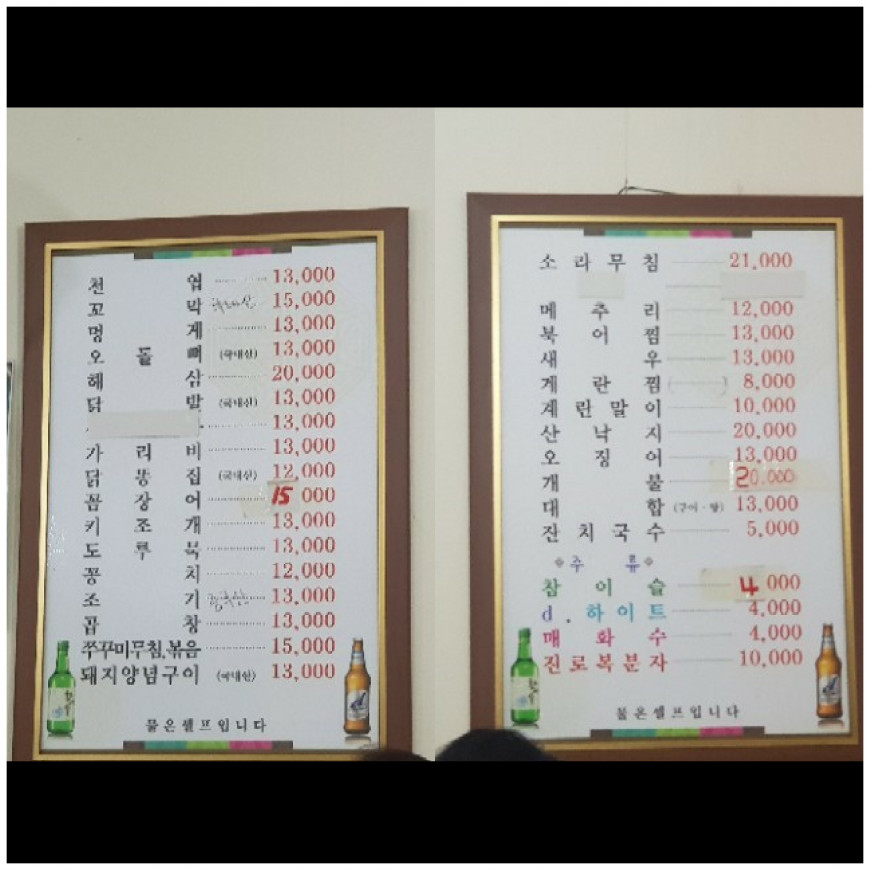 천엽 13,000
꼬막 15,000
멍게 13,000
오돌뼈 (국내산) 13,000
해삼 20,000
닭발 (국내산) 13,000
13,000
가리비 13,000
닭똥집 (국내산) 12,000
꼼장어 15 000
키조개 13,000
도루묵 13,000
꽁치 12,000
조기 13,000
곱창 13,000
쭈꾸미무침.볶음 15,000
돼지양념구이 (국내산) 13,000
물은셀프입니다
소라무침 21,000
메추리 12,000
북어찜 13,000
새우 13,000
계란찜 8,000
계란말이 10,000
산낙지 20,000
오징어 13,000
개불 20.000
대합 (구이·탕) 13,000
잔치국수 5,000
주류
참이슬 4 000
d.하이트 4,000
매화수 4,000
진로복분자 10,000
물은셀프입니다